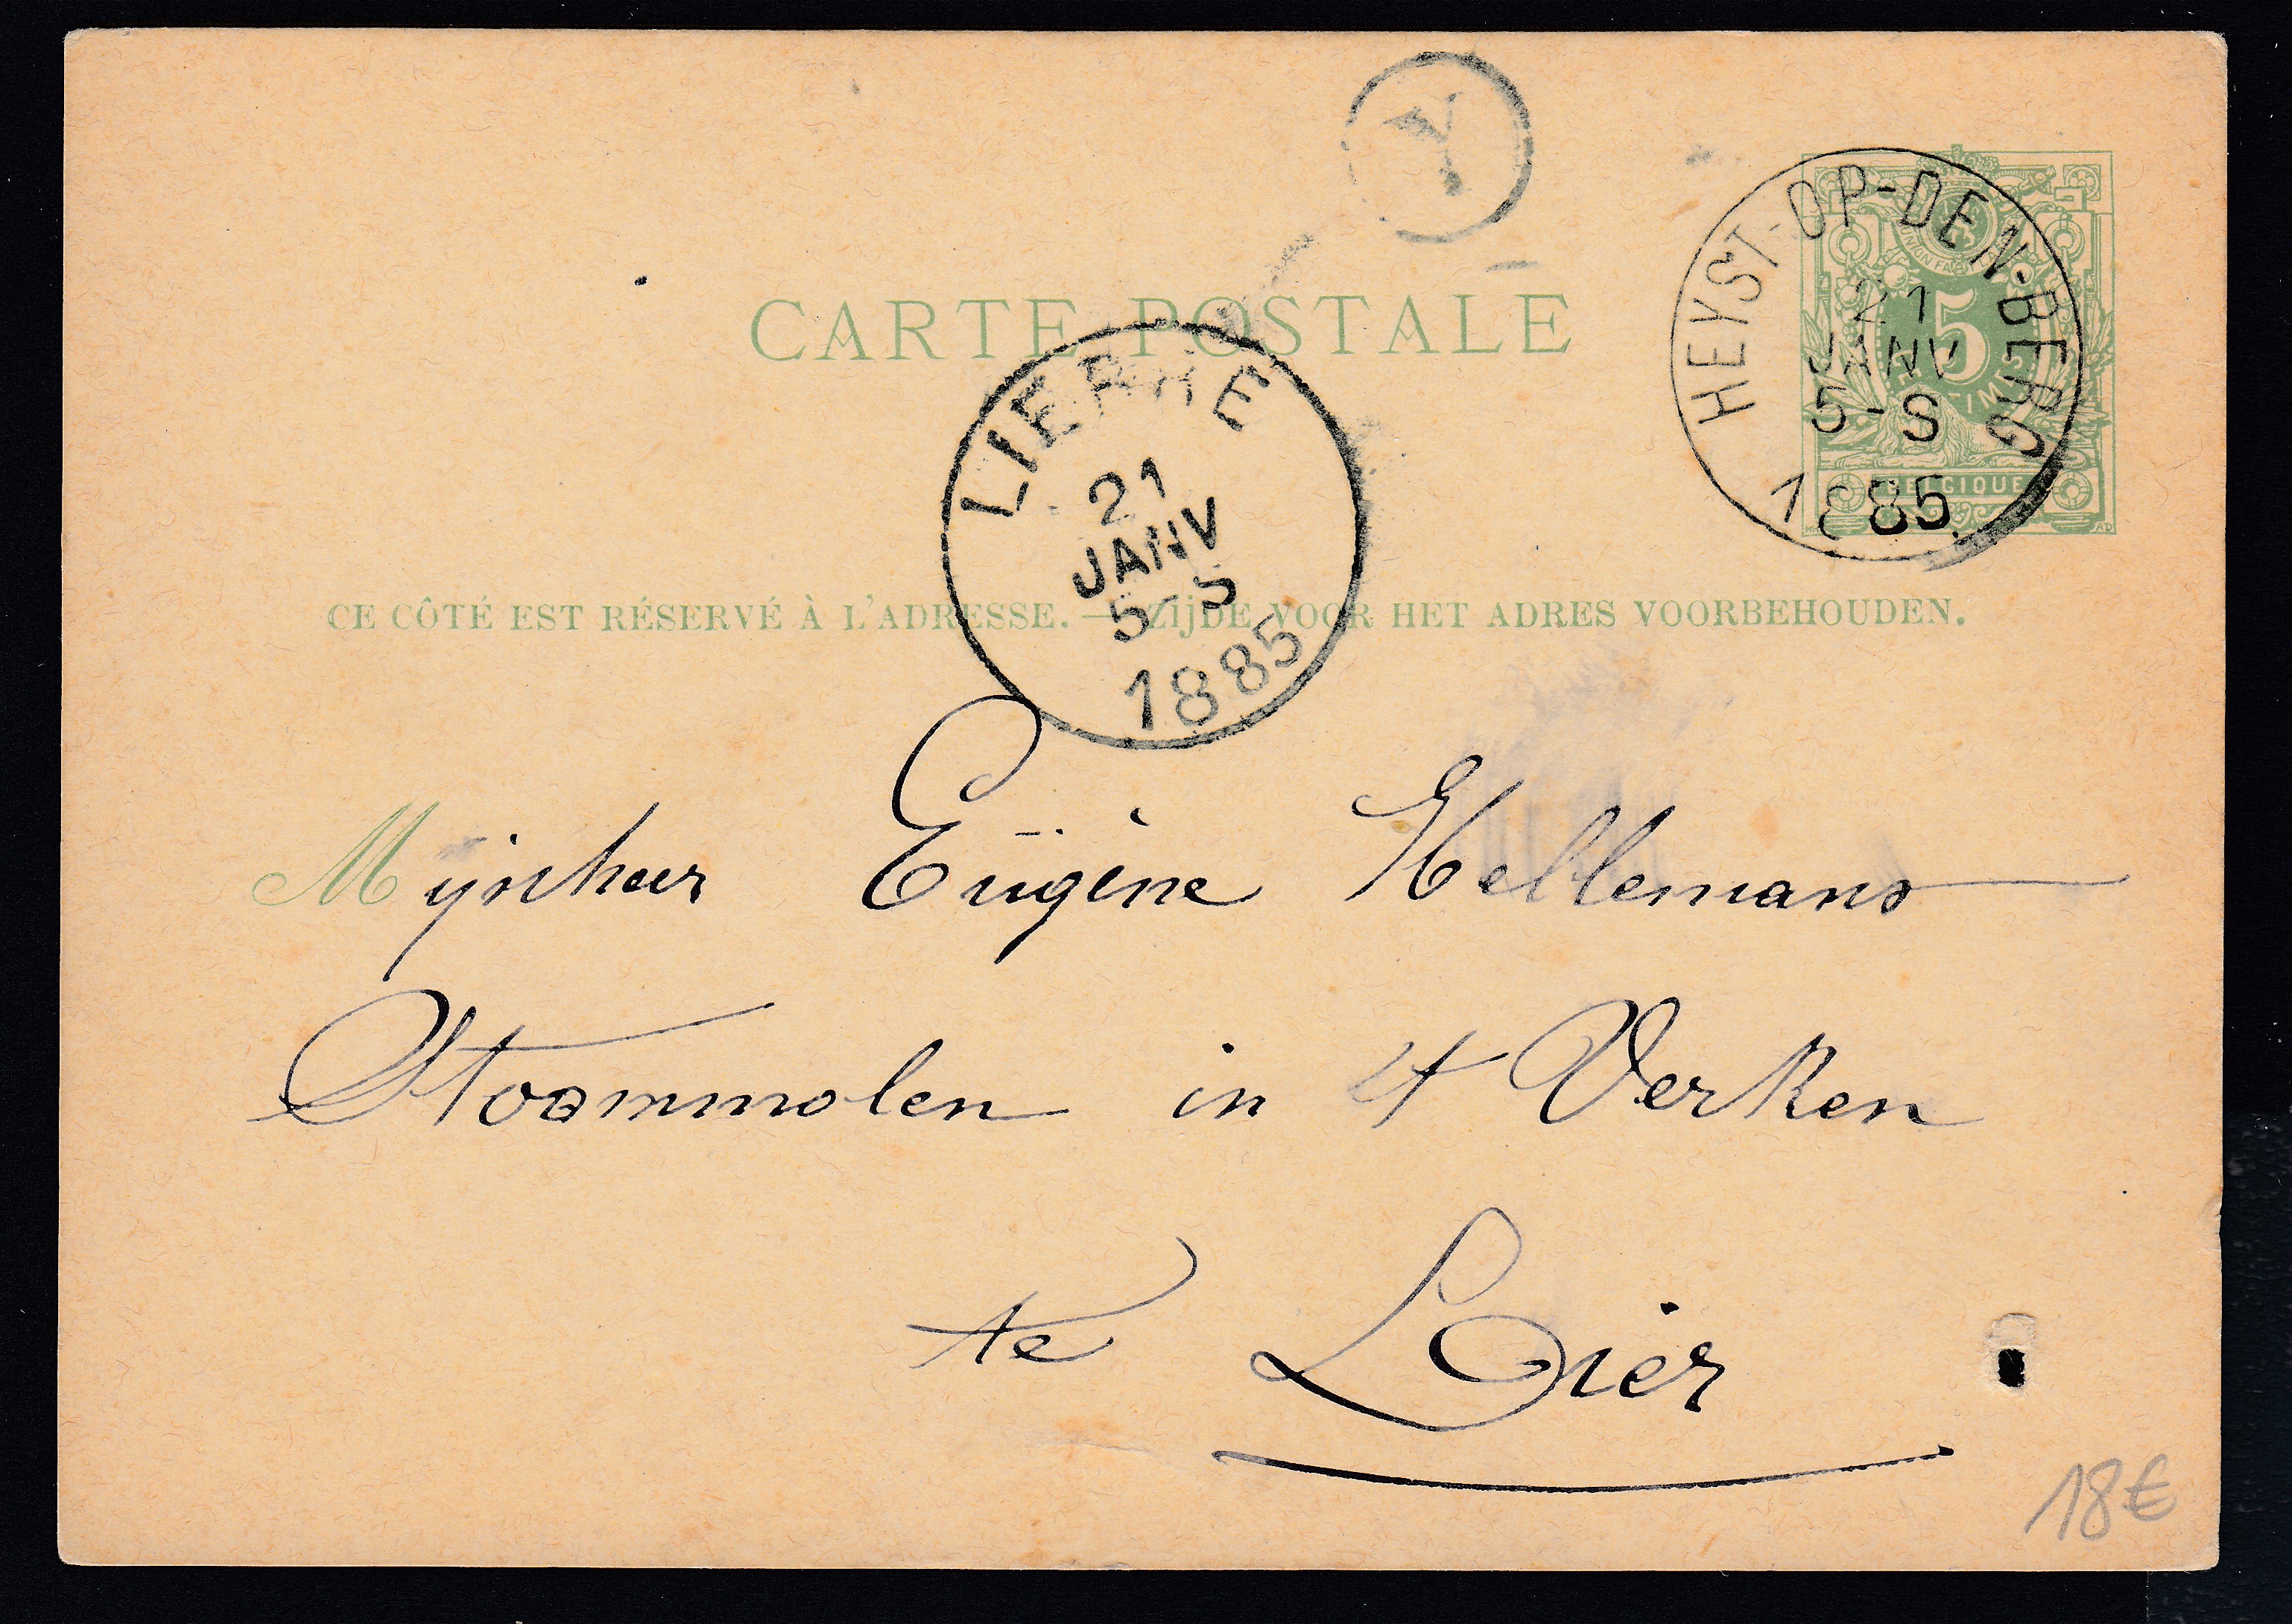 Y
CARTE POSTALE
HEYST-OP-DEN-BERG
21
JANV
5-S
1885
UNION FA
5
BELGIQUE
LIERRE
21
JANV
5-S
1885
CE CÔTÉ EST RÉSERVÉ À L'ADRESSE. — ZIJDE VOOR HET ADRES VOORBEHOUDEN.
Mijnheer Eugène Hellemans
Stoommolen in 't Verken
te Lier
18€